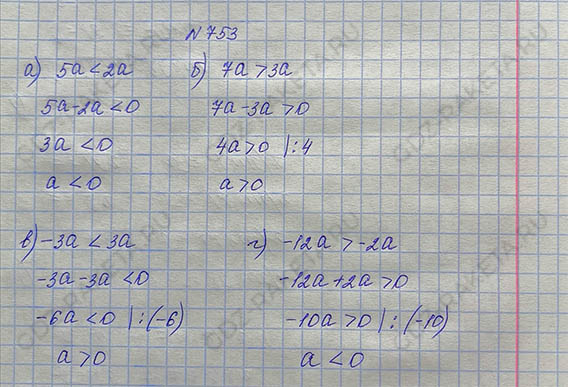 № 753
а) 5a < 2a
5a - 2a < 0
3a < 0
a < 0
б) 7a > 3a
7a - 3a > 0
4a > 0 |: 4
a > 0
в) -3a < 3a
-3a - 3a < 0
-6a < 0 |: (-6)
a > 0
г) -12a > -2a
-12a + 2a > 0
-10a > 0 |: (-10)
a < 0
GDZ-RAKETA.RU